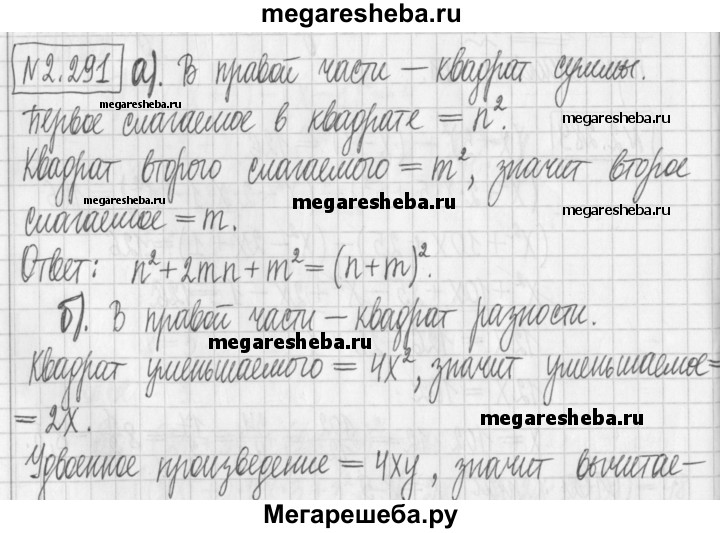 megaresheba.ru
№2.291 а). В правой части – квадрат суммы.
megaresheba.ru
Первое слагаемое в квадрате = n².
megaresheba.ru
Квадрат второго слагаемого = m², значит второе
megaresheba.ru megaresheba.ru megaresheba.ru
слагаемое = m.
Ответ: n²+2mn+m²=(n+m)².
б). В правой части – квадрат разности.
megaresheba.ru
Квадрат уменьшаемого = 4x², значит уменьшаемое=
= 2x.
megaresheba.ru
Удвоенное произведение = 4xy, значит вычитае–
Мегарешеба.ру